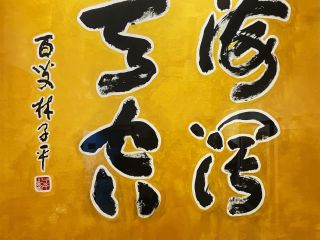 海濶
天空
百叟林子平